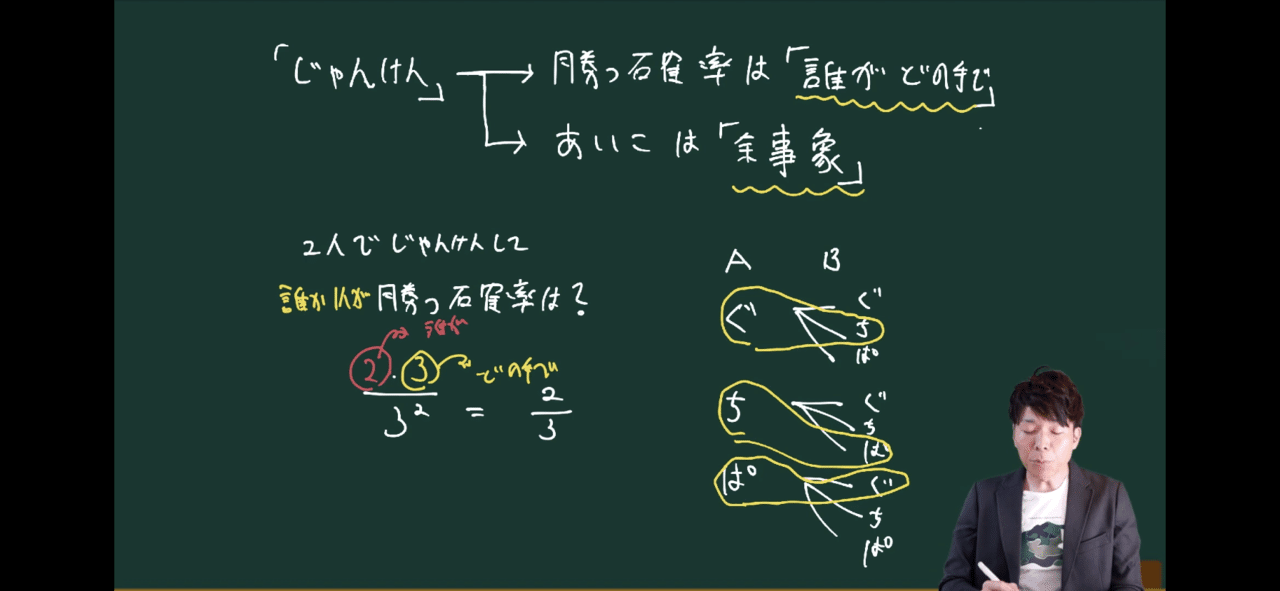 「じゃんけん」 → 勝つ確率は「誰がどの手で」
→ あいこは「余事象」
2人でじゃんけんして
誰か1人が勝つ確率は?
誰が
2・3 どの手で
3² = 2/3
A B
ぐ ぐ
ち
ぱ
ち ぐ
ち
ぱ
ぱ ぐ
ち
ぱ